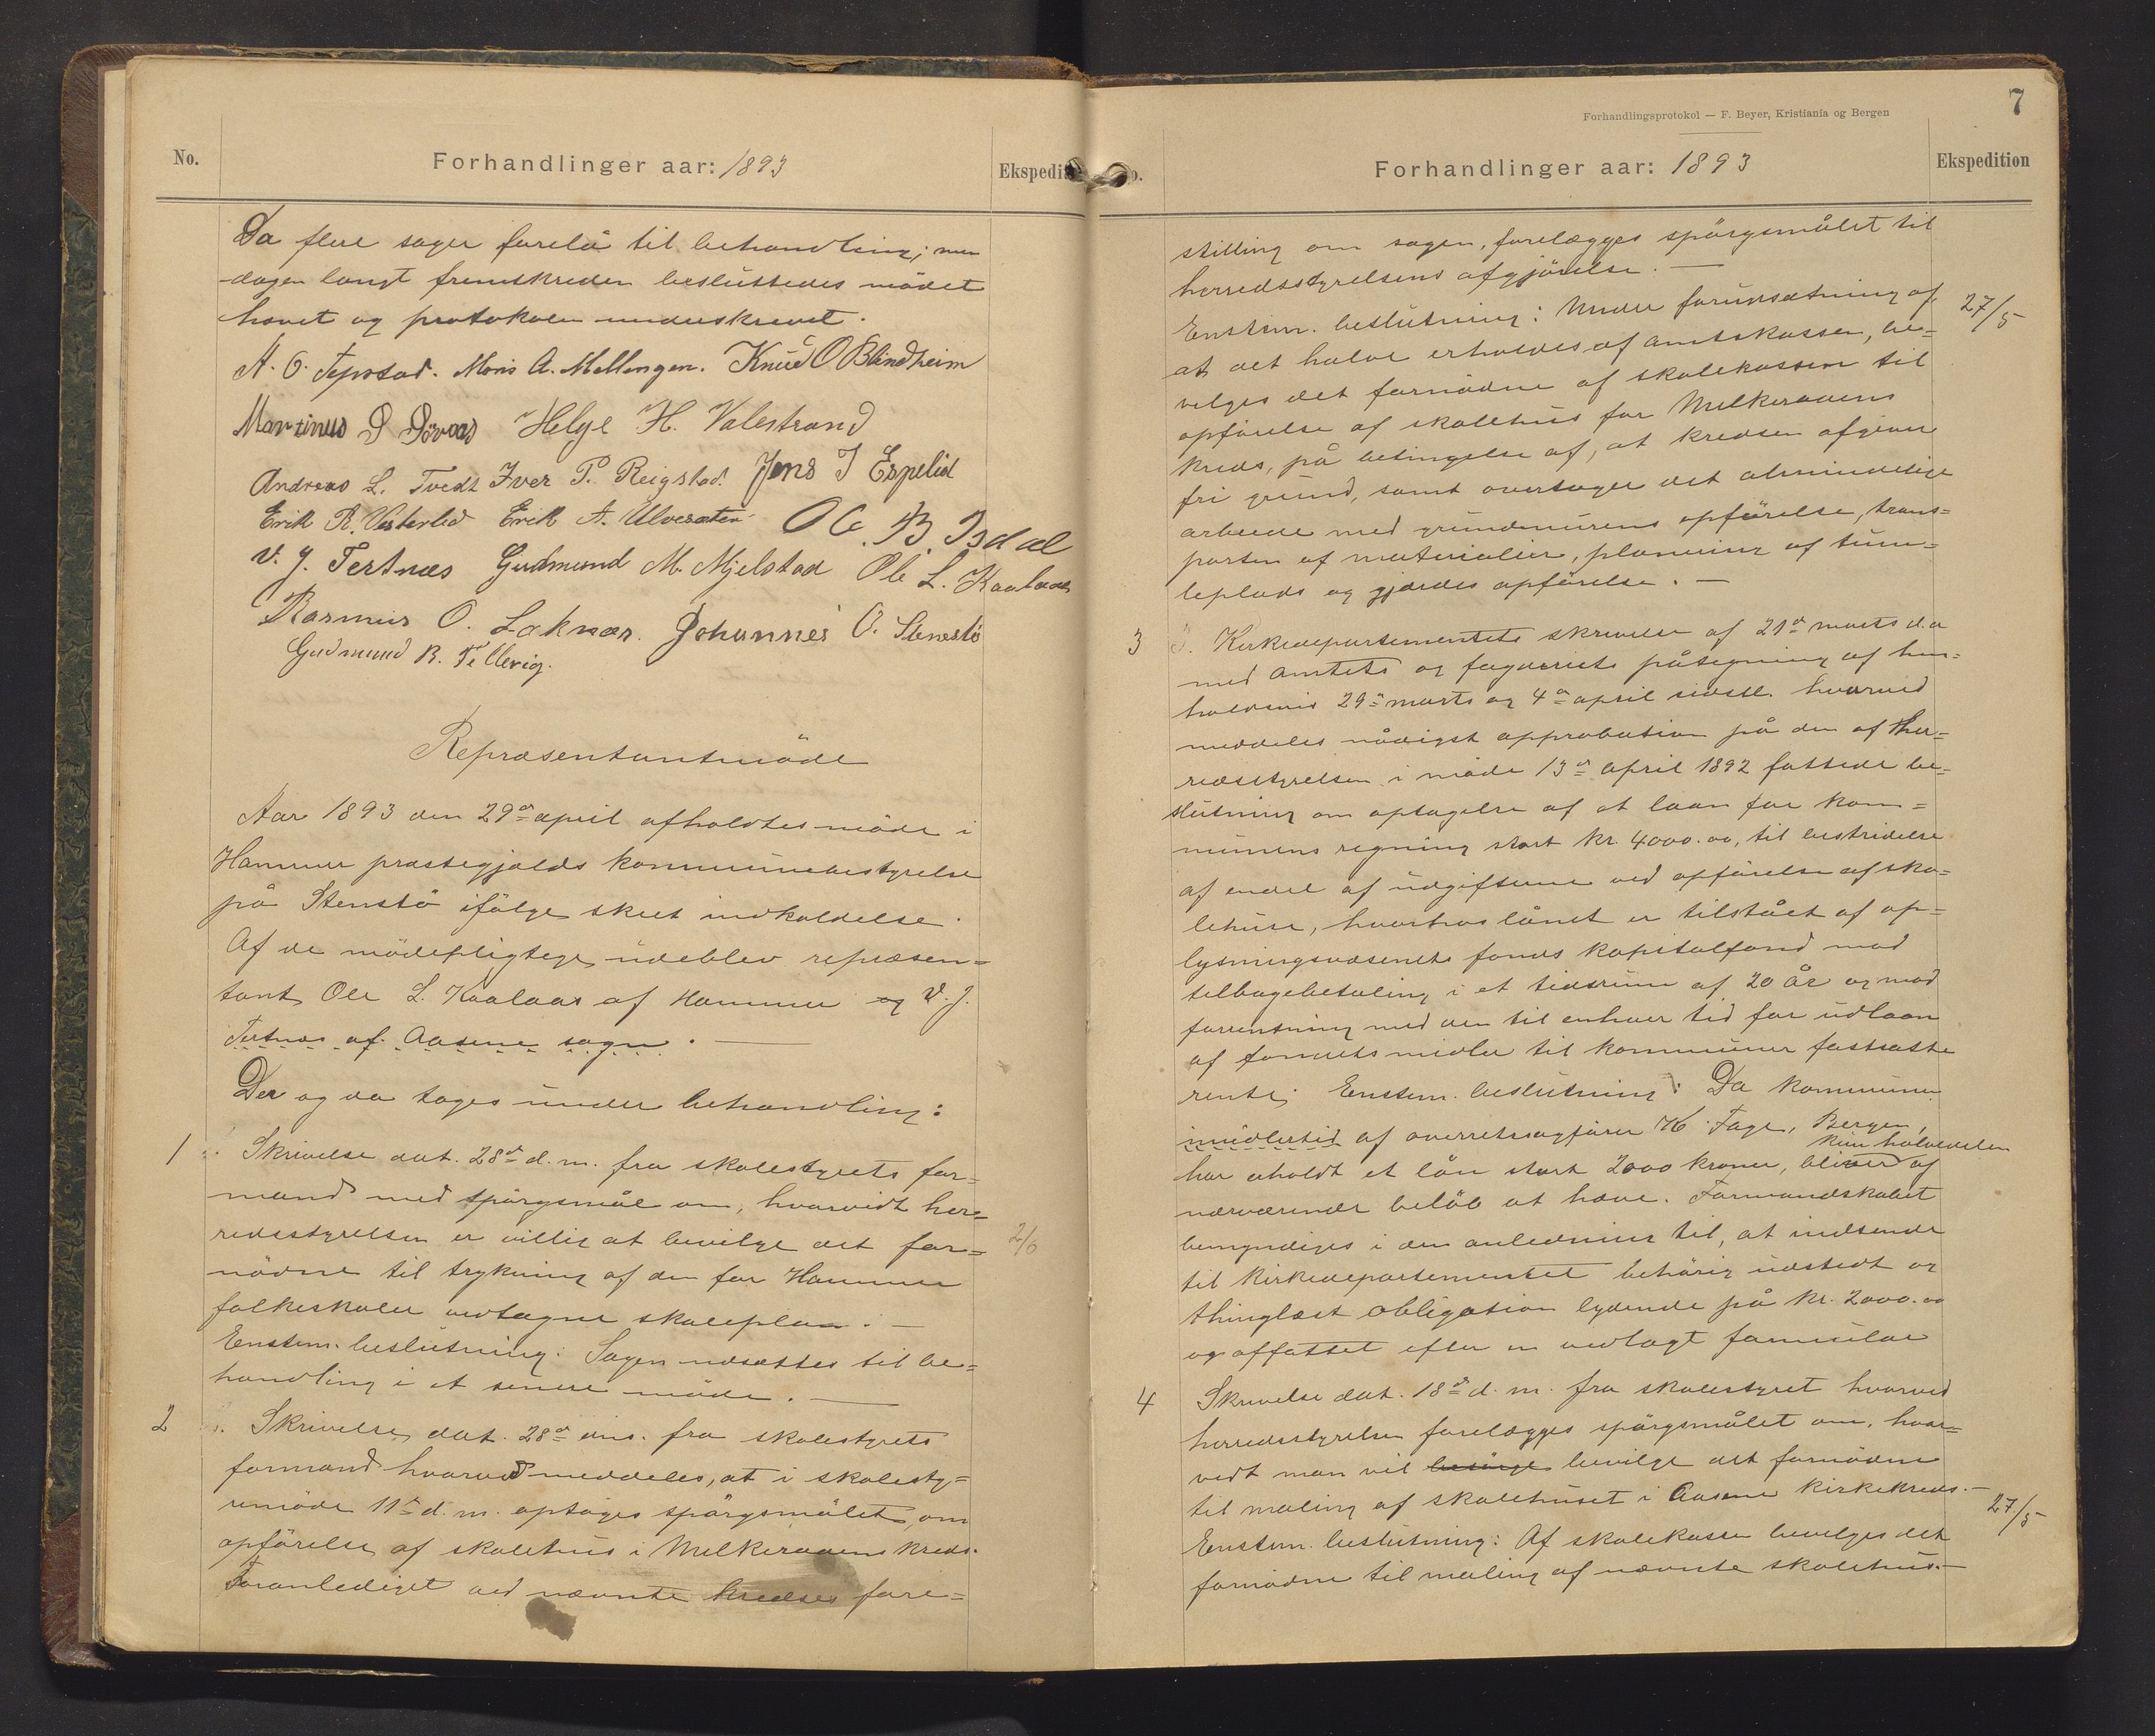 No.
Forhandlinger aar: 1893
Ekspedit
Da flere sager forelå til behandling; men
dagen langt fremskreden besluttedes mödet
hævet og protokolen underskrevet.
A. O. Mons A. Mellingen. Knud O Blindheim
Martinus D Dövaas Helge H. Valestrand
Andreas L. Tvedt Iver P. Reigstad. Jens J Espelid
Erik R. Vesterlid Erik A. Ulvesæter Ole B. Isdal
V. J. Tertnæs Gudmund M. Mjelstad Ole L. Kaalaas
Rasmus O. Loknær. Johannes O. Stenstö
Gudmund R. Tellevig.
Repræsentantmöde
Aar 1893 den 29de april afholdtes möde i
Hammer præstegjælds kommunebestyrelse
på Stenstö ifölge skeet indkaldelse.
Af de mödepligtige udeblev repræsen=
tant Ole L. Kaalaas af Hammer og V. J.
Tertnæs af Aasene sogn. —
Der og da toges under behandling:
1 Skrivelse dat. 28de d. m. fra skolestyrets for=
mand med spörgsmål om, hvorvidt her=
redsstyrelsen er villig at bevilge det for=
2/6
nödne til trykning af den for Hammer
folkeskoler vedtagne skoleplan. —
Enstem. beslutning: Sagen udsættes til be=
handling i et senere möde. —
2 Skrivelse dat. 28de ds. fra skolestyrets
formand hvorved meddeles, at i skolesty=
remöde 11te d. m. optoges spörgsmålet om
opförelse af skolehus i Melkeraaens kreds.
Foranlediget ved nævnte kredses fore=
7
Forhandlingsprotokol — F. Beyer, Kristiania og Bergen
o.
Forhandlinger aar: 1893
Ekspedition
stilling om sagen, forelægges spörgsmålet til
herredsstyrelsens afgjörelse. —
Enstem. beslutning: Under forudsætning af,
27/5
at det halve erholdes af amtskassen, be=
vilges det fornödne af skolekassen til
opförelse af skolehus for Melkeraaens
kreds, på betingelse af, at kredsen afgiver
fri grund, samt overtager det almindelige
arbeide med grundmurens opförelse, trans=
porten af materialier, planering af tum=
leplads og gjærdes opförelse. —
3 Kirkedepartementets skrivelse af 21de marts d.a
med amtets og fogderiets påtegning af hen=
holdsvis 29de marts og 4de april sidstl. hvorved
meddeles nådigst approbation på den af her=
redsstyrelsen i möde 13de april 1892 fattede be=
slutning om optagelse af et laan for kom=
munens regning stort kr. 4000.00, til bestridelse
af endel af udgifterne ved opförelse af sko=
lehuse, hvorhos lånet er tilstået af op=
lysningsvæsenets fonds kapitalfond mod
tilbagebetaling i et tidsrum af 20 år og mod
forrentning med den til enhver tid for udlaan
af fondets midler til kommuner fastsatte
rente. Enstem. beslutning: Da kommunen
imidlertid af overretssagförer K. Fage, Bergen,
kun halvdelen
har erholdt et lån stort 2000 kroner, bliver af
nærværende belöb at hæve. Formandskabet
bemyndiges i den anledning til, at indsende
til kirkedepartementet behörig udstedt og
thinglæst obligation lydende på kr. 2000.00
og affattet efter en vedlagt formular
4 Skrivelse dat. 18de d. m. fra skolestyret hvorved
herredsstyrelsen forelægges spörgsmålet om, hvor=
vidt man vil bevilge det fornödne
til maling af skolehuset i Aasene kirkekreds. —
27/5
Enstem. beslutning: Af skolekassen bevilges det
fornödne til maling af nævnte skolehus. —